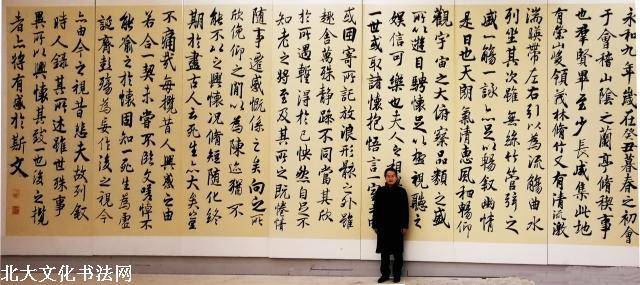 永和九年歲在癸丑暮春之初會
于會稽山陰之蘭亭脩稧事
也群賢畢至少長咸集此地
有崇山峻領茂林脩竹又有清流激
湍暎帶左右引以為流觴曲水
列坐其次雖無絲竹管弦之
盛一觴一詠亦足以暢叙幽情
是日也天朗氣清惠風和暢仰
觀宇宙之大俯察品類之盛
所以遊目騁懷足以極視聽之
娛信可樂也夫人之相
一世或取諸懷抱悟言一室
或因寄所託放浪形骸之外雖
趣舍萬殊靜躁不同當其欣
於所遇暫得於己快然自足不
知老之將至及其所之既惓情
隨事遷感慨係之矣向之所
欣俛仰之閒以為陳迹猶不
能不以之興懷況脩短隨化終
期於盡古人云死生亦大矣豈
不痛哉每攬昔人興感之由
若合一契未嘗不臨文嗟悼不
能喻之於懷固知一死生為虛
誕齊彭殤為妄作後之視今
亦由今之視昔悲夫故列叙
時人錄其所述雖世殊事
異所以興懷其致一也後之攬
者亦將有感於斯文
北大文化书法网